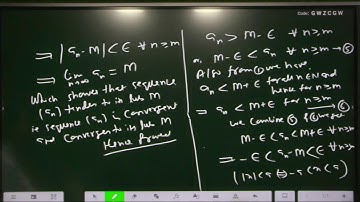 Code: GWZCGW
⇒ |aₙ-M| < ϵ ∀ n≥m
⇒ lim aₙ = M
n→∞
Which shows that sequence
(aₙ) tends to its lub M
ie sequence (aₙ) is Convergent
and Converges to its lub M
Hence Proved
aₙ > M-ϵ ∀ n≥m
M-ϵ < aₙ ∀ n≥m
Also from we have
aₙ < M+ϵ for all n∈N and
hence for n≥m
⇒ aₙ < M+ϵ for n≥m
we combine
M-ϵ < aₙ < M+ϵ ∀ n≥m
⇒ -ϵ < aₙ-M < ϵ ∀ n≥m